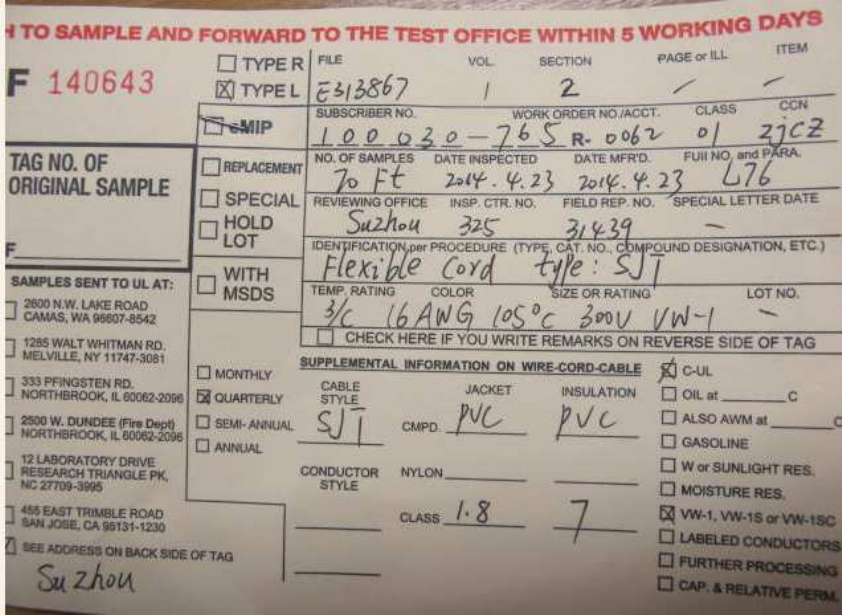 H TO SAMPLE AND FORWARD TO THE TEST OFFICE WITHIN 5 WORKING DAYS
F 140643
TYPE R
TYPE L
eMIP
FILE VOL. SECTION PAGE or ILL ITEM
E313867 1 2 / -
SUBSCRIBER NO. WORK ORDER NO./ACCT. CLASS CCN
100030-765 R- 0062 01 ZJCZ
NO. OF SAMPLES DATE INSPECTED DATE MFR'D. FUII NO. and PARA.
70 Ft 2014.4.23 2014.4.23 L76
REVIEWING OFFICE INSP. CTR. NO. FIELD REP. NO. SPECIAL LETTER DATE
Suzhou 325 31439 -
IDENTIFICATION per PROCEDURE (TYPE, CAT. NO., COMPOUND DESIGNATION, ETC.)
Flexible Cord type: SJT
TEMP. RATING COLOR SIZE OR RATING LOT NO.
3/C 16 AWG 105°C 300V VW-1 -
CHECK HERE IF YOU WRITE REMARKS ON REVERSE SIDE OF TAG
TAG NO. OF
ORIGINAL SAMPLE
F
REPLACEMENT
SPECIAL
HOLD
LOT
WITH
MSDS
SAMPLES SENT TO UL AT:
2600 N.W. LAKE ROAD
CAMAS, WA 98607-8542
1285 WALT WHITMAN RD.
MELVILLE, NY 11747-3081
333 PFINGSTEN RD.
NORTHBROOK, IL 60062-2096
2500 W. DUNDEE (Fire Dept)
NORTHBROOK, IL 60062-2096
12 LABORATORY DRIVE
RESEARCH TRIANGLE PK,
NC 27709-3995
455 EAST TRIMBLE ROAD
SAN JOSE, CA 95131-1230
SEE ADDRESS ON BACK SIDE OF TAG
Suzhou
MONTHLY
QUARTERLY
SEMI-ANNUAL
ANNUAL
SUPPLEMENTAL INFORMATION ON WIRE-CORD-CABLE
CABLE
STYLE
JACKET INSULATION
SJT CMPD. PVC PVC
CONDUCTOR
STYLE
NYLON
CLASS 1.8 7
C-UL
OIL at C
ALSO AWM at C
GASOLINE
W or SUNLIGHT RES.
MOISTURE RES.
VW-1, VW-1S or VW-1SC
LABELED CONDUCTORS
FURTHER PROCESSING
CAP. & RELATIVE PERM.